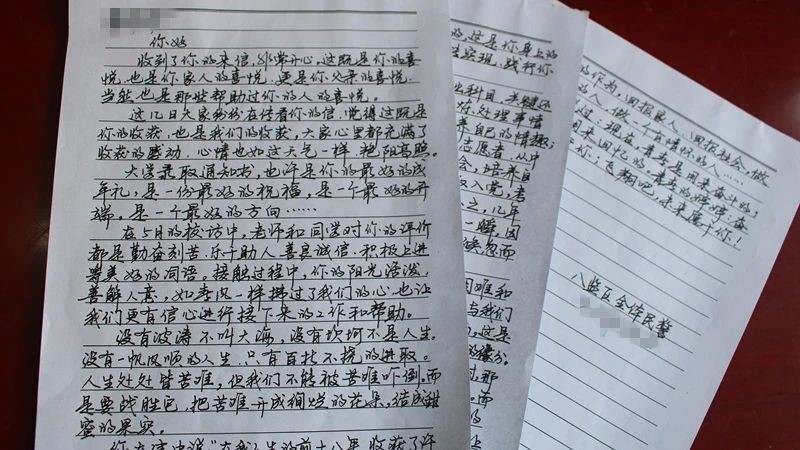 你好
收到了你的来信,非常开心,这既是你的喜
悦,也是你家人的喜悦,更是你父亲的喜悦,
当然也是那些帮助过你的人的喜悦。
这几日大家纷纷在传看你的信,觉得这既是
你的收获,也是我们的收获,大家心里都充满了
收获的感动,心情也如这天气一样,艳阳高照。
大学录取通知书,也许是你的最好的成
年礼,是一份最好的祝福,是一个最好的开
端,是一个最好的方向……
在5月的校访中,老师和同学对你的评价
都是勤奋刻苦、乐于助人、善良诚信、积极上进
等美好的词语。接触过程中,你的阳光活泼、
善解人意,如春风一样拂过了我们的心,也让
我们更有信心进行接下来的工作和帮助。
没有波涛不叫大海,没有坎坷不是人生。
没有一帆风顺的人生,只有百折不挠的进取。
人生处处皆苦难,但我们不能被苦难吓倒,而
是要战胜它,把苦难开成绚烂的花朵,结成甜
蜜的果实。
你在信中说"在我人生的前十八年,收获了许
的,这是你身上的
实现,践行你
出科目,关键还
处理事情
养自己的情趣;
志愿者,从中
会,培养自
取入党,考
之,几年
一瞬,因
忽而
困难和
与我们
,这是
缘分。
过,那
,而
的
上
的作为,回报家人、回报社会,做
的人,做一个有情有你的人……
过:现在,青春是用来奋斗的;
用来回忆的。青春的
你;飞翔吧,未来属于你!
八监区全体民警